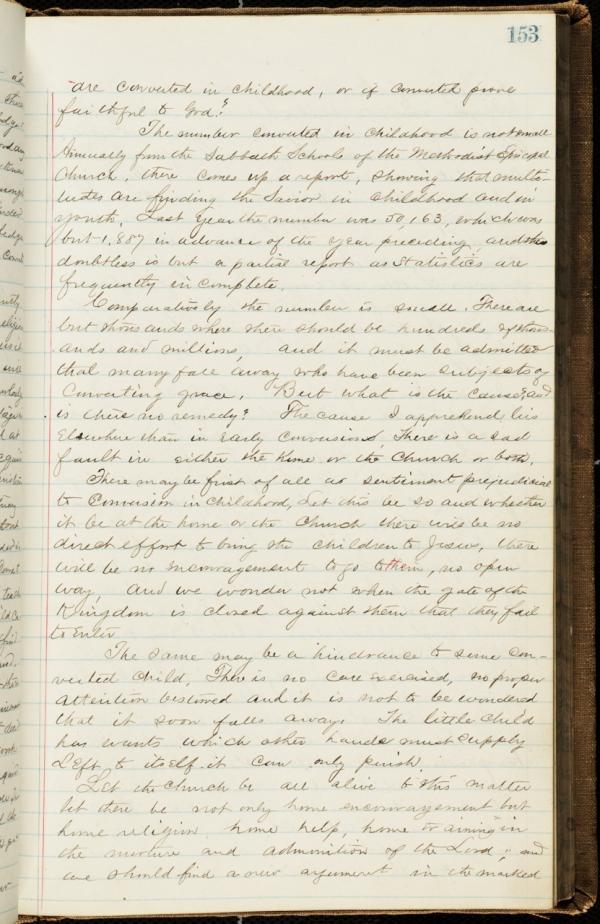 153
are converted in childhood, or if converted prove
faithful to God?
The number converted in childhood is not small
Annually from the Sabbath Schools of the Methodist Episcopal
Church, there comes up a report, showing that multi-
tudes are finding the Savior in childhood and in
youth, Last Year the number was 50,163, which was
but 1,887 in advance of the year preceding, and this
doubtless is but a partial report as statistics are
frequently incomplete.
Comparatively the number is small. There are
but thousands where there should be hundreds of thous-
ands and millions, and it must be admitted
that many fall away who have been subjects of
Converting grace. But what is the cause? and
is there no remedy? The cause I apprehend lies
Elsewhere than in Early Conversions, There is a sad
fault in either the Home or the Church or both.
There may be first of all a sentiment prejudicial
to Conversion in childhood, Let this be so and whether
it be at the home or the Church there will be no
direct effort to bring the children to Jesus, there
will be no encouragement to go to them, no open
way, And we wonder not when the gate of the
Kingdom is closed against them that they fail
to Enter
The same may be a hindrance to some con-
verted child, There is no care exercised, no proper
Attention bestowed and it is not to be wondered
that it soon falls away. The little child
has wants which other hands must supply
Left to itself it can only perish.
Let the Church be all alive to this matter
let there be not only home encouragement but
home religion, home help, home training "in
the nurture and admonition of the Lord," and
we should find a new argument in the marked